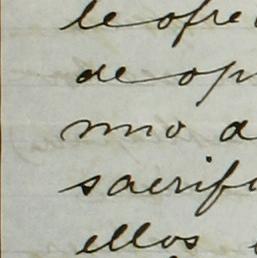 le ofre
de op
mno a
sacrifi
ellos